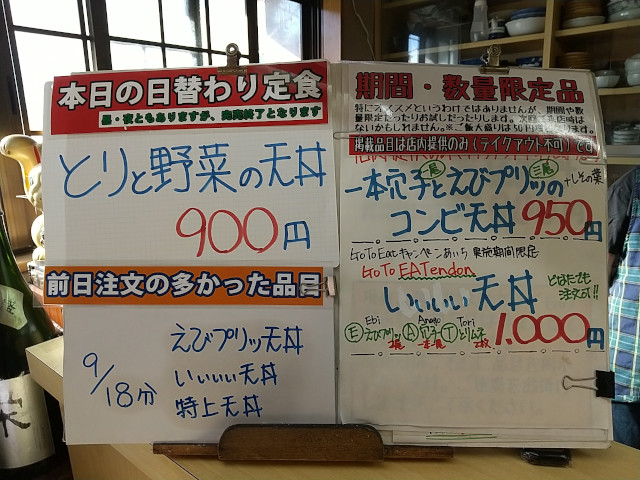 本日の日替わり定食
昼・夜ともありますが、無くなり次第終了となります
とりと野菜の天丼
900円
前日注文の多かった品目
9/18分
えびプリッ天丼
いぃぃぃ天丼
特上天丼
期間・数量限定品
特にオススメというわけではありませんが、期間や数
量限定だったりお試しだったりします。次回ご来店時は
ないかもしれません。※ご飯大盛りは50円
掲載品目は店内提供のみ(テイクアウト不可)です
一本穴子とえびプリッの +しその葉
一尾 二尾
コンビ天丼 950円
GoToEatキャンペーンあいち 実施期間限定
GoTo EATendon
いぃぃぃ天丼 どなたでも注文可!!
Ebi Anago Tori
E えびプリッ 2尾 A 穴子 一本 T とりムネ 2枚
1,000円